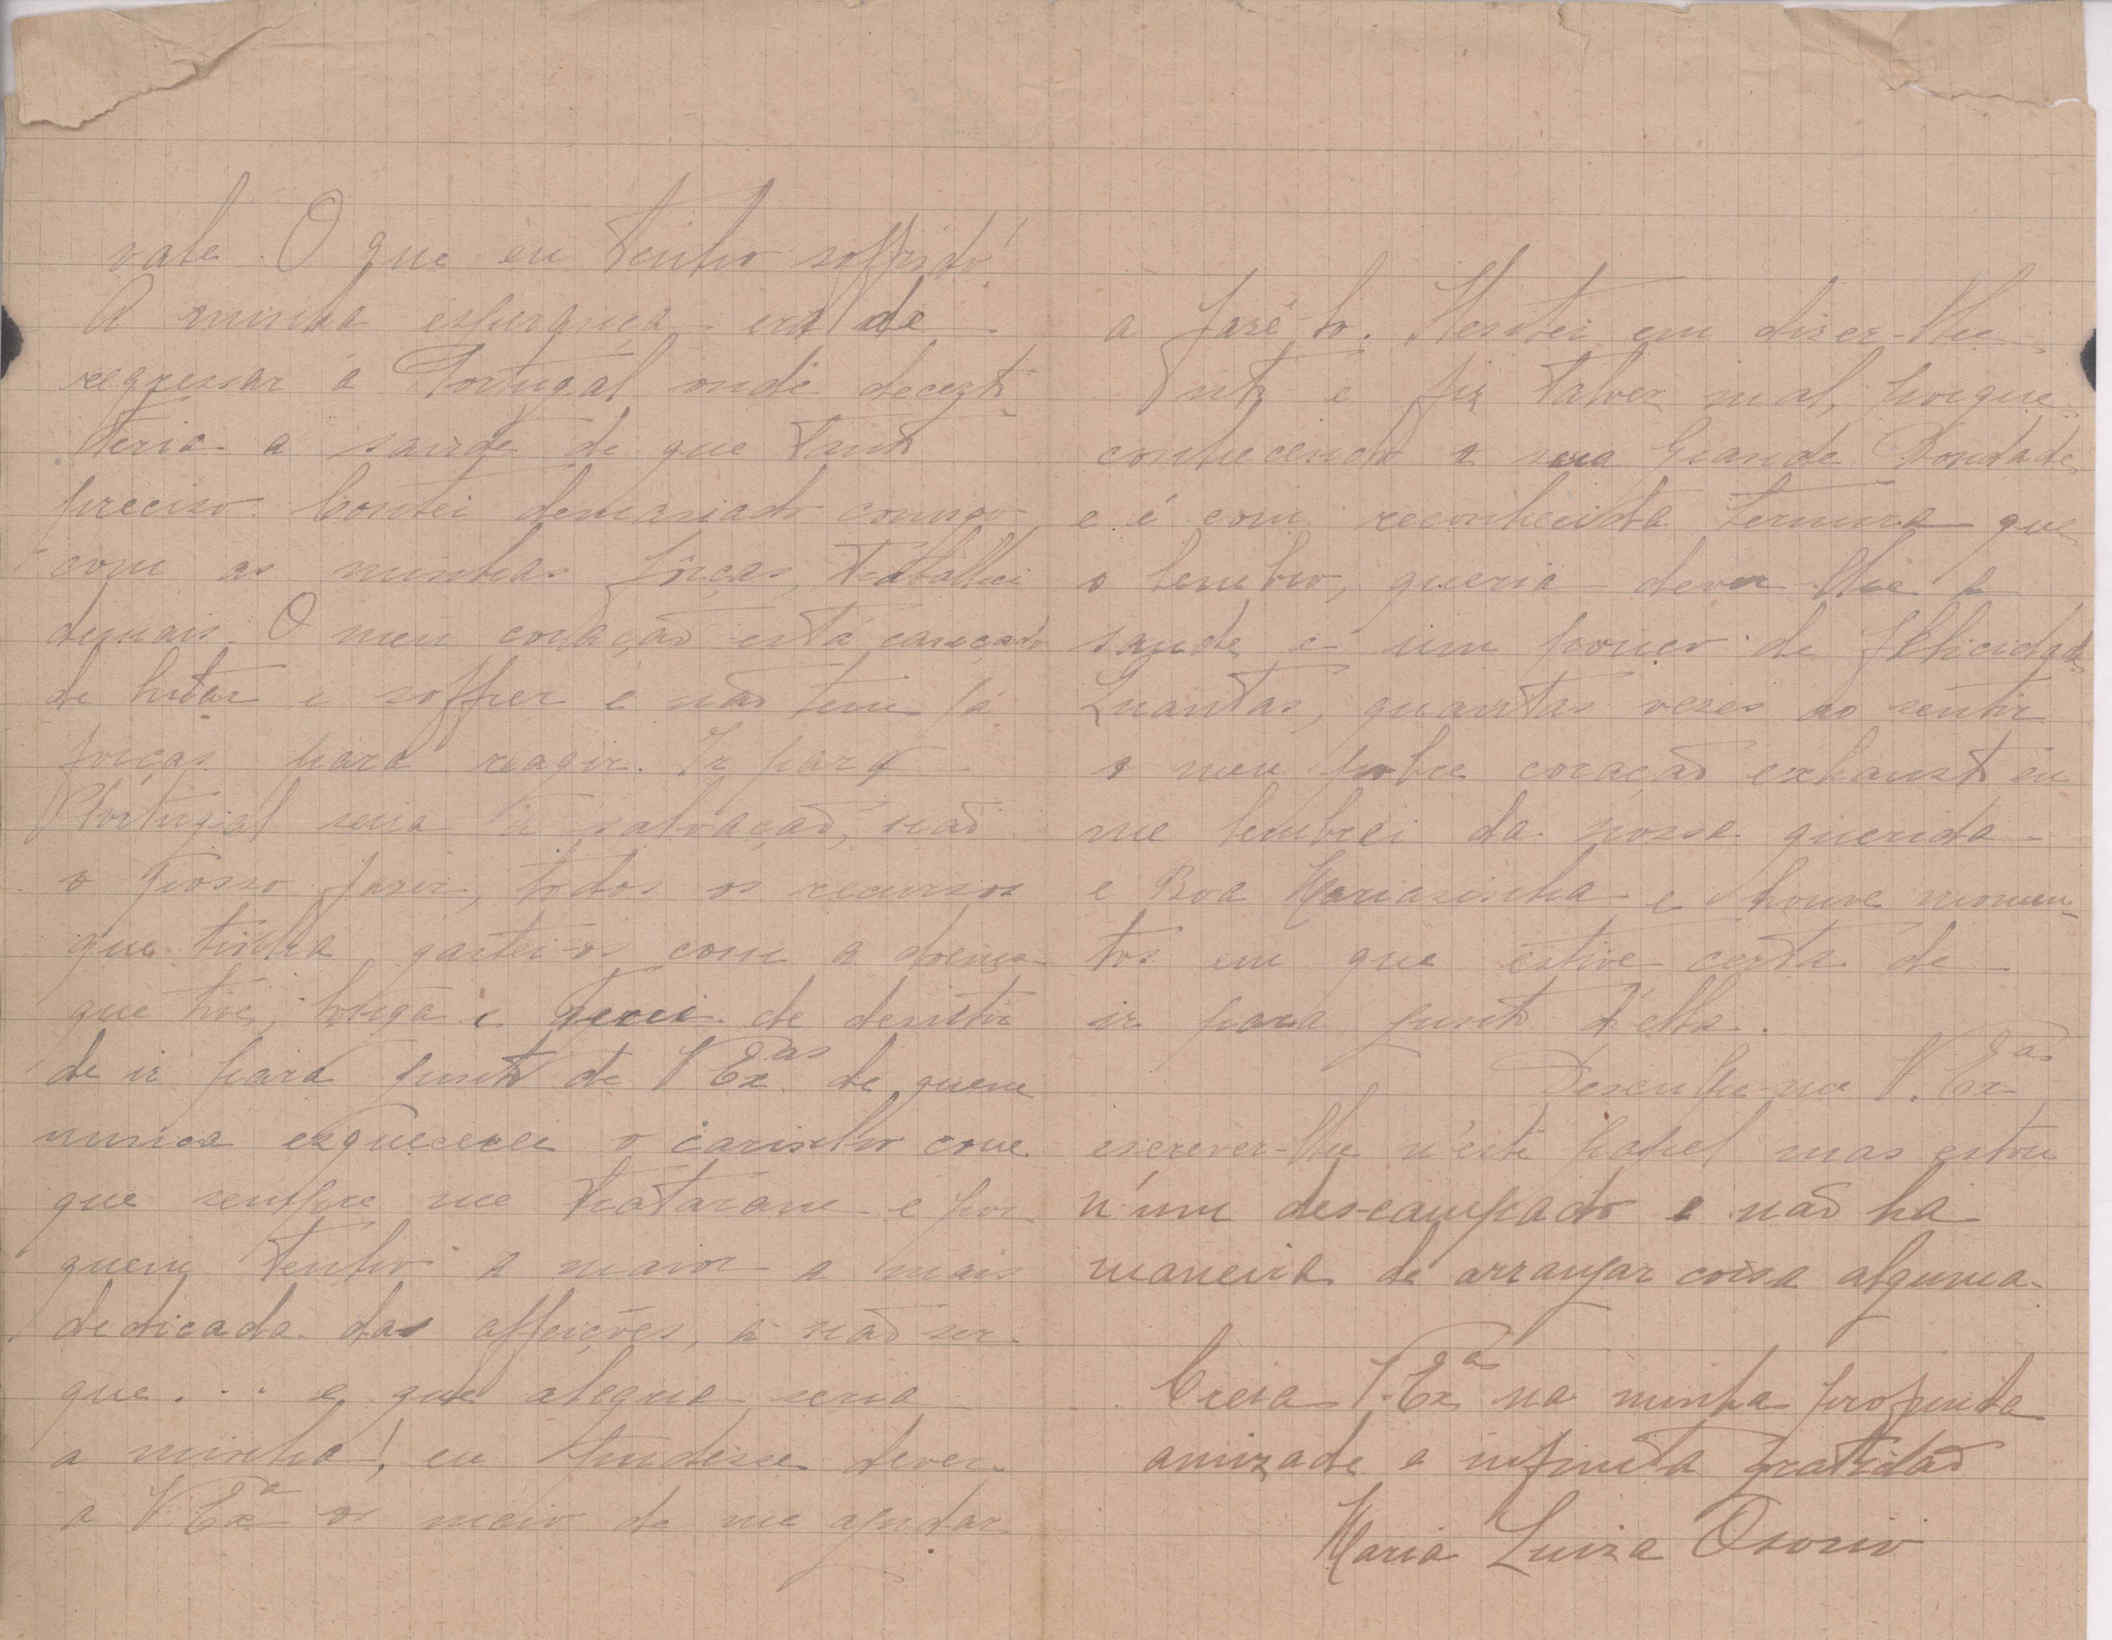 vale. O que eu tenho soffrido!
A minha esperança era de
regressar a Portugal onde decerto
teria a saude de que tanto
preciso. Contei demasiado
com as minhas forças, trabalhei
demais. O meu coração está cançado
de luctar e soffrer e não tem já
forças para reagir. Ir para
Portugal seria a salvação, não
o posso fazer, todos os recursos
que tinha gastei-os com a doença
que tive, longa e terei de desistir
de ir para junto de V. Ex.as de quem
nunca esquecerei o carinho com
que sempre me trataram e por
quem tenho a maior e mais
dedicada das affeições, a não ser
que... e que alegria seria
a minha! eu pudesse dever
a V. Ex.a o meio de me ajudar
a fazê-lo. Hesitei em dizer-lhe
isto e fiz talvez mal, porque
conhecendo a sua Grande Bondade,
e é com reconhecida ternura que
o lembro, queria dever-lhe a
saude e um pouco de felicidade
Quantas, quantas vezes ao sentir
o meu pobre coração exhausto eu
me lembrei da nossa querida
e Boa Mariasinha e houve momen-
tos em que estive certa de
ir para junto d'ella.
Desculpe-me V. Ex.a
escrever-lhe n'este papel mas estou
n'um descampado e não ha
maneira de arranjar coisa alguma.
Creia V. Ex.a na minha profunda
amizade e infinita gratidão
Maria Luiza Osorio